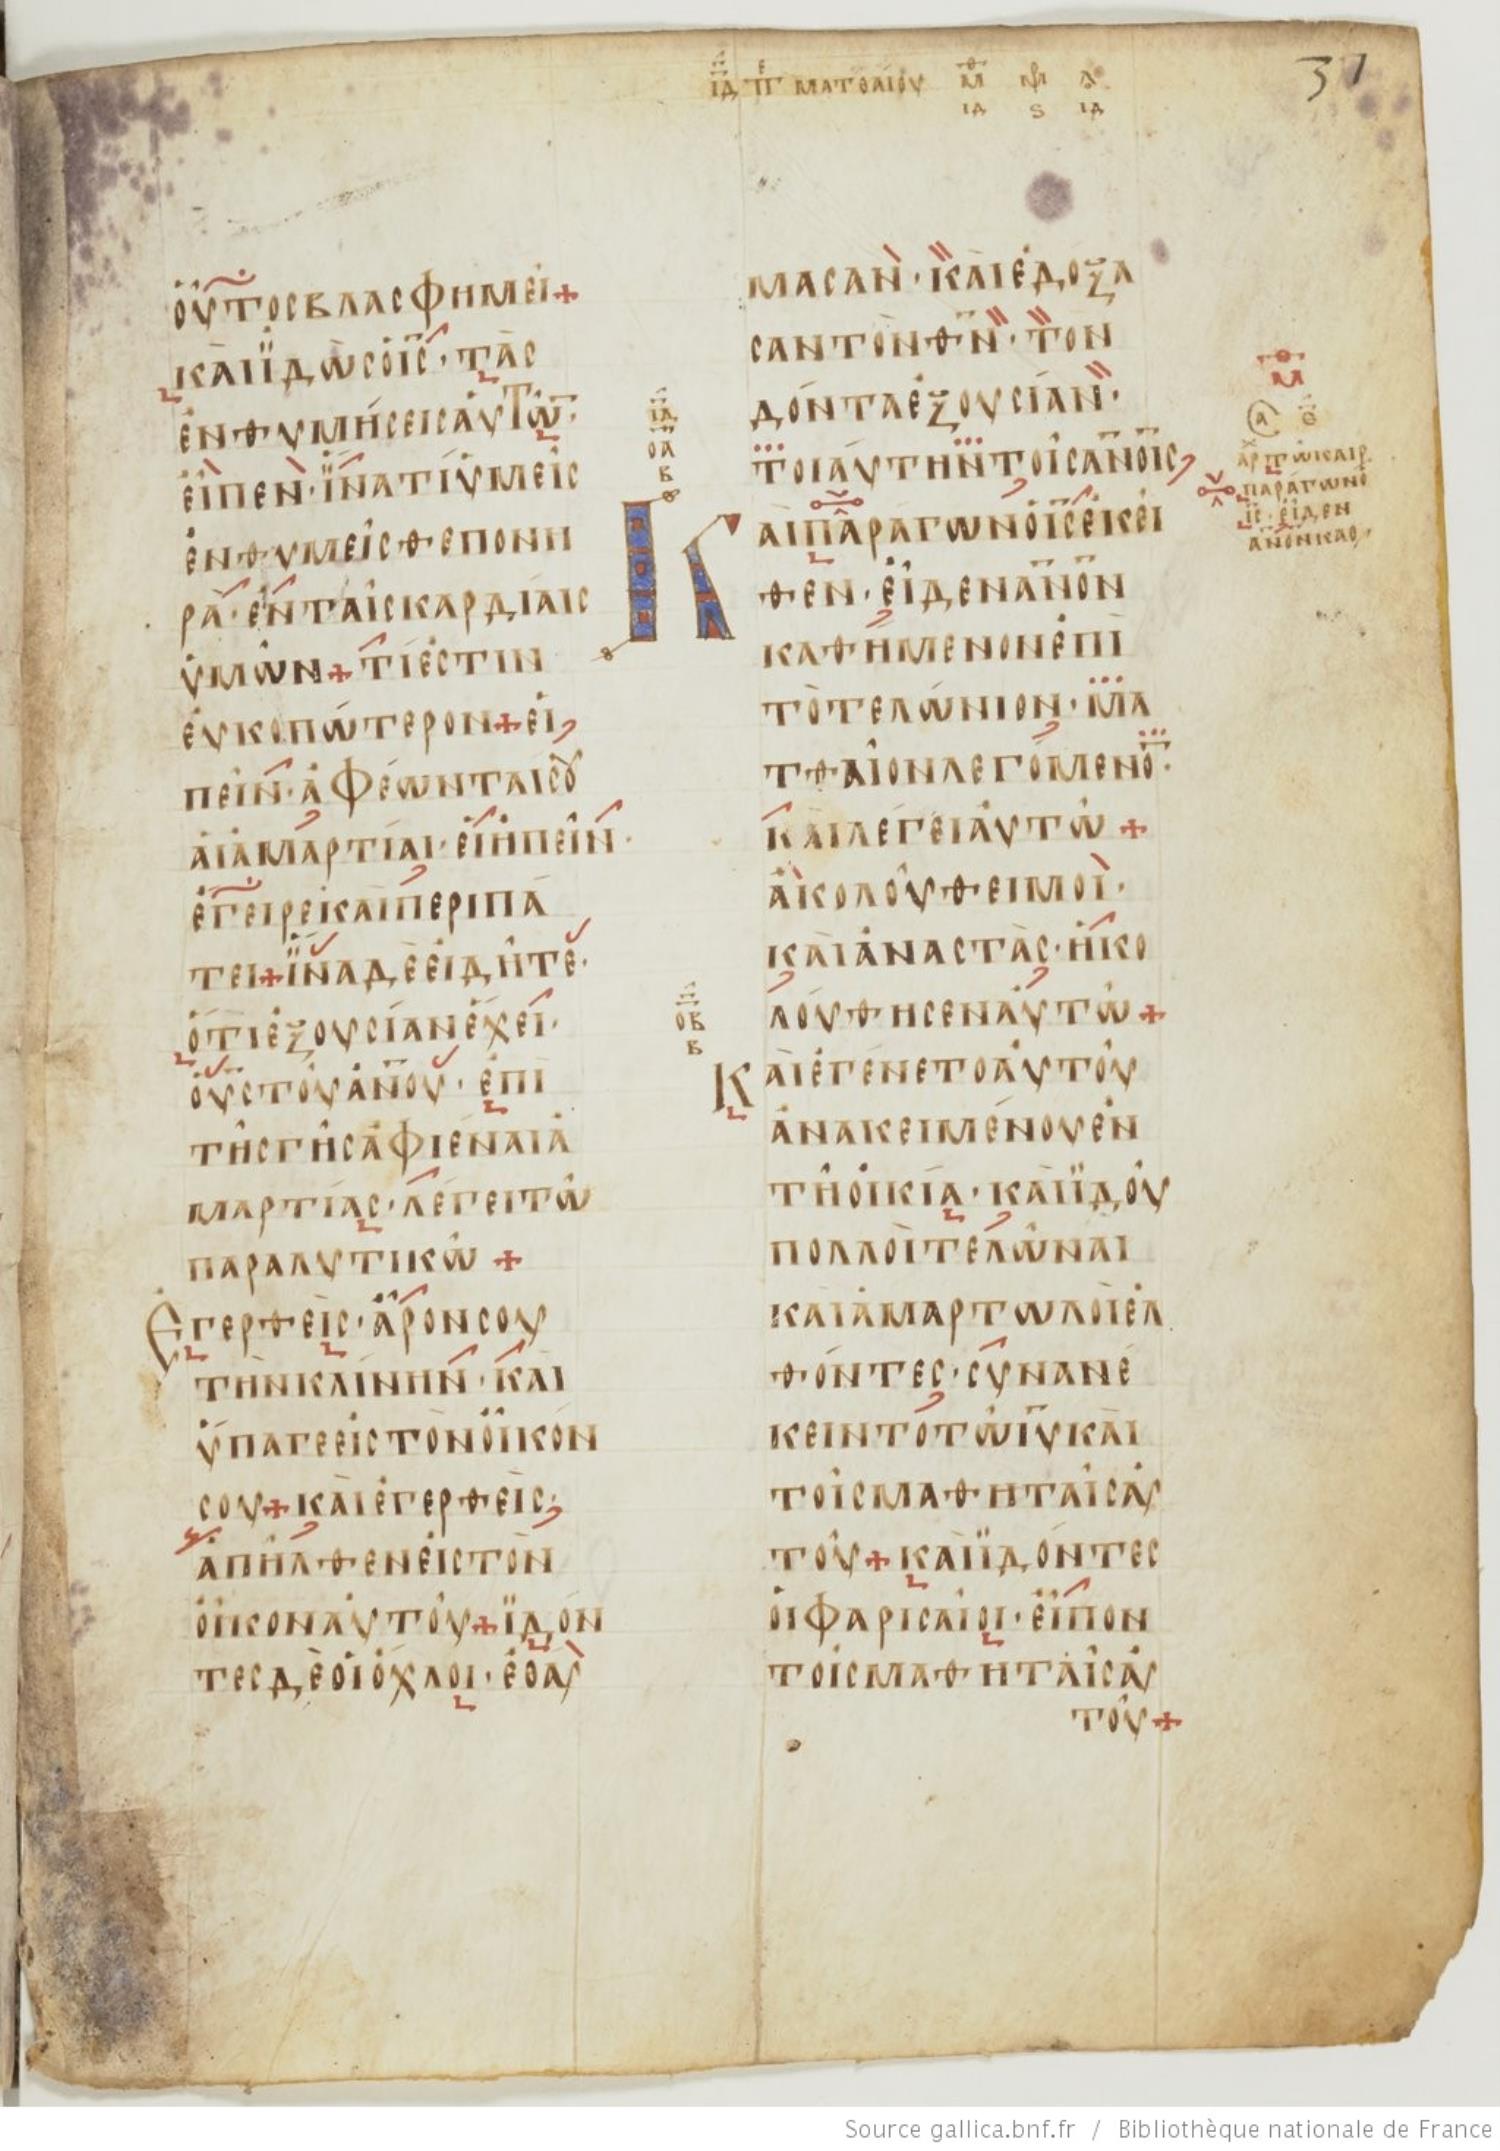 31
ΜΑΤΘΑΙΟΥ
ΟΥΤΟΣΒΛΑΣΦΗΜΕΙ+
ΚΑΙΪΔΩΣΟΙΣ·ΤΑΣ
ΕΝΘΥΜΗΣΕΙΣΑΥΤΩ̅·
ΕΙΠΕΝ·ΪΝΑΤΙΥΜΕΙΣ
ΕΝΘΥΜΕΙΣΘΕΠΟΝΗ
ΡΑ·ΕΝΤΑΙΣΚΑΡΔΙΑΙΣ
ΥΜΩΝ+ΤΙΕΣΤΙΝ
ΕΥΚΟΠΩΤΕΡΟΝ+ΕΙ
ΠΕΙΝ·ΑΦΕΩΝΤΑΙΣΟΥ
ΑΙΑΜΑΡΤΙΑΙ·ΕΙΗΠΕΙΝ·
ΕΓΕΙΡΕΚΑΙΠΕΡΙΠΑ
ΤΕΙ+ΪΝΑΔΕΕΙΔΗΤΕ·
ΟΤΙΕΞΟΥΣΙΑΝΕΧΕΙ·
ΟΥΣΤΟΥΑΝ̅ΟΥ·ΕΠΙ
ΤΗΣΓΗΣΑΦΙΕΝΑΙΑ
ΜΑΡΤΙΑΣ·ΛΕΓΕΙΤΩ
ΠΑΡΑΛΥΤΙΚΩ+
ΕΓΕΡΘΕΙΣ·ΑΡΟΝΣΟΥ
ΤΗΝΚΛΙΝΗΝ·ΚΑΙ
ΥΠΑΓΕΕΙΣΤΟΝΟΙΚΟΝ
ΣΟΥ+ΚΑΙΕΓΕΡΘΕΙΣ·
ΑΠΗΛΘΕΝΕΙΣΤΟΝ
ΟΙΚΟΝΑΥΤΟΥ+ΪΔΟΝ
ΤΕΣΔΕΟΙΟΧΛΟΙ·ΕΘΑΥ
ΜΑΣΑΝ·ΚΑΙΕΔΟΞΑ
ΣΑΝΤΟΝΘ̅Ν̅·ΤΟΝ
ΔΟΝΤΑΕΞΟΥΣΙΑΝ·
ΤΟΙΑΥΤΗΝΤΟΙΣΑΝ̅ΟΙΣ
ΙΔ
ΟΑ
Β
Κ
ΑΙΠΑΡΑΓΩΝΟΙΣΕΚΕΙ
ΘΕΝ·ΕΙΔΕΝΑΝ̅ΟΝ
ΚΑΘΗΜΕΝΟΝΕΠΙ
ΤΟΤΕΛΩΝΙΟΝ·ΜΑ
ΤΘΑΙΟΝΛΕΓΟΜΕΝΟ̅·
ΚΑΙΛΕΓΕΙΑΥΤΩ+
ΑΚΟΛΟΥΘΕΙΜΟΙ·
ΚΑΙΑΝΑΣΤΑΣ·ΗΚΟ
ΛΟΥΘΗΣΕΝΑΥΤΩ+
ΟΒ
Β
ΚΑΙΕΓΕΝΕΤΟΑΥΤΟΥ
ΑΝΑΚΕΙΜΕΝΟΥΕΝ
ΤΗΟΙΚΙΑ·ΚΑΙΪΔΟΥ
ΠΟΛΛΟΙΤΕΛΩΝΑΙ
ΚΑΙΑΜΑΡΤΩΛΟΙΕΛ
ΘΟΝΤΕΣ·ΣΥΝΑΝΕ
ΚΕΙΝΤΟΤΩΙ̅Υ̅ΚΑΙ
ΤΟΙΣΜΑΘΗΤΑΙΣΑΥ
ΤΟΥ+ΚΑΙΪΔΟΝΤΕΣ
ΟΙΦΑΡΙΣΑΙΟΙ·ΕΙΠΟΝ
ΤΟΙΣΜΑΘΗΤΑΙΣΑΥ
ΤΟΥ+
ΠΑΡΑΓΩΝΟ
Ι̅Σ̅·ΕΙΔΕΝ
ΑΝ̅ΟΝΚΑΘ
Source gallica.bnf.fr / Bibliothèque nationale de France